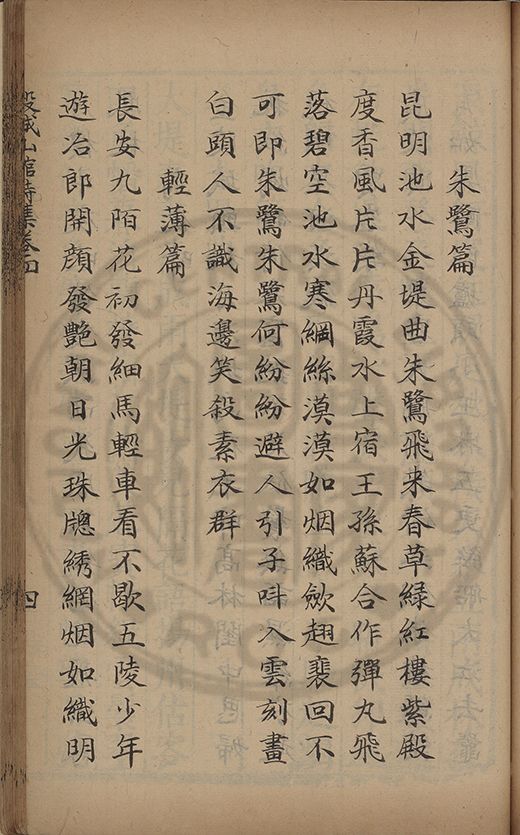 朱鷺篇
昆明池水金堤曲朱鷺飛来春草緑紅樓紫殿
度香風片片丹霞水上宿王孫蘇合作彈丸飛
落碧空池水寒網絲漠漠如烟織歛翅裴回不
可即朱鷺朱鷺何紛紛避人引子呌入雲刻畫
白頭人不識海邊笑殺素衣群
輕薄篇
長安九陌花初發細馬輕車看不歇五陵少年
遊冶郎開顔發艶朝日光珠牕綉網烟如織明
榖城山館詩集卷之四
四